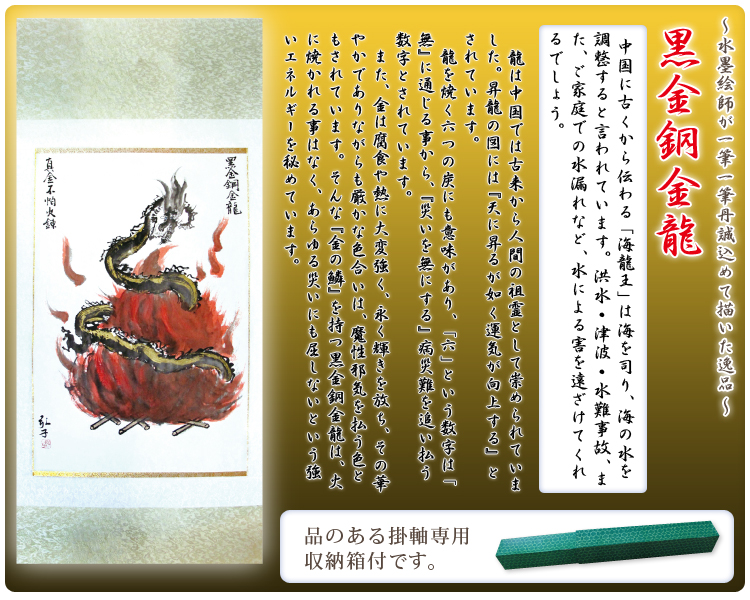 ～水墨絵師が一筆一筆丹誠込めて描いた逸品～
黒金鋼金龍
中国に古くから伝わる「海龍王」は海を司り、海の水を
調整すると言われています。洪水・津波・水難事故、ま
た、ご家庭での水漏れなど、水による害を遠ざけてくれ
るでしょう。
龍は中国では古来から人間の祖霊として崇められていま
した。昇龍の図には『天に昇るが如く運気が向上する』と
されています。
龍を焼く六つの炭にも意味があり、「六」という数字は「
無』に通じる事から、『災いを無にする』病災難を追い払う
数字とされています。
また、金は腐食や熱に大変強く、永く輝きを放ち、その華
やかでありながらも厳かな色合いは、魔性邪気を払う色と
もされています。そんな『金の鱗』を持つ黒金鋼金龍は、火
に焼かれる事はなく、あらゆる災いにも屈しないという強
いエネルギーを秘めています。
黒金鋼金龍
真金不怕火錬
弘子
品のある掛軸専用
収納箱付です。